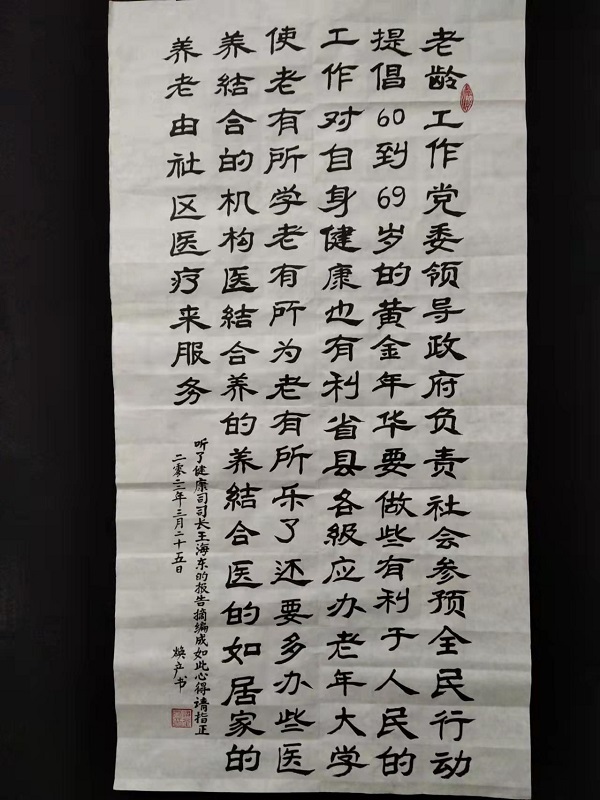 老龄工作党委领导政府负责社会参预全民行动
提倡60到69岁的黄金年华要做些有利于人民的
工作对自身健康也有利省县各級应办老年大学
使老有所学老有所为老有所乐了还要多办些医
养结合的机构医结合养的养结合医的如居家的
养老由社区医疗来服务
听了健康司司长王海东的报告摘编成如此心得请指正
二零二三年三月二十五日 焕产书